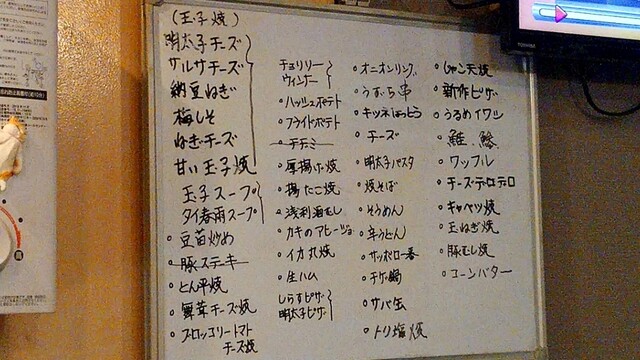 (玉子焼)
明太子チーズ
サルサチーズ
納豆ねぎ
梅しそ
ねぎチーズ
甘い玉子焼
玉子スープ
タイ春雨スープ
豆苗炒め
豚ステーキ
とん平焼
舞茸チーズ焼
ブロッコリートマト
チーズ焼
チョリソー
ウィンナー
ハッシュポテト
フライドポテト
チヂミ
厚揚げ焼
揚たこ焼
浅利酒むし
カキのアヒージョ
イカ丸焼
生ハム
しらすピザ
明太子ピザ
オニオンリング
うずら串
キツネほっとう
チーズ
明太子パスタ
焼そば
そうめん
辛うどん
サッポロ一番
チゲ鍋
サバ缶
トリ塩焼
じゃこ天焼
新作ピザ
うるめイワシ
鮭、鯵
ワッフル
チーズデロデロ
キャベツ焼
玉ねぎ焼
豚むし焼
コーンバター
TOSHIBA